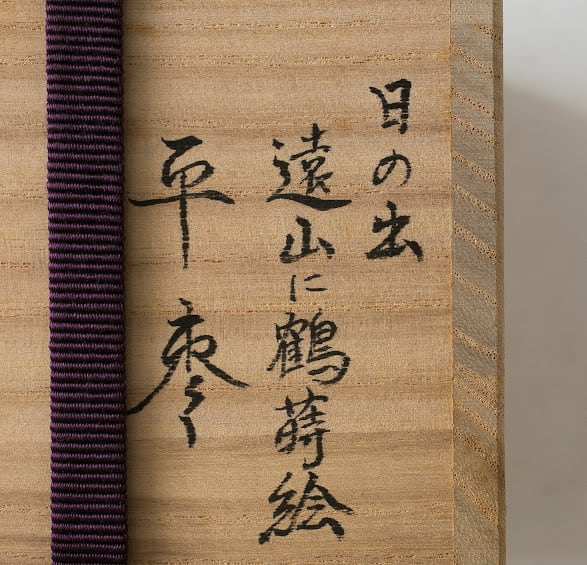 日の出
遠山に鶴蒔絵
平棗